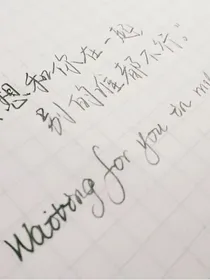 想和你在一起
别的谁都不行。
Waiting for you in